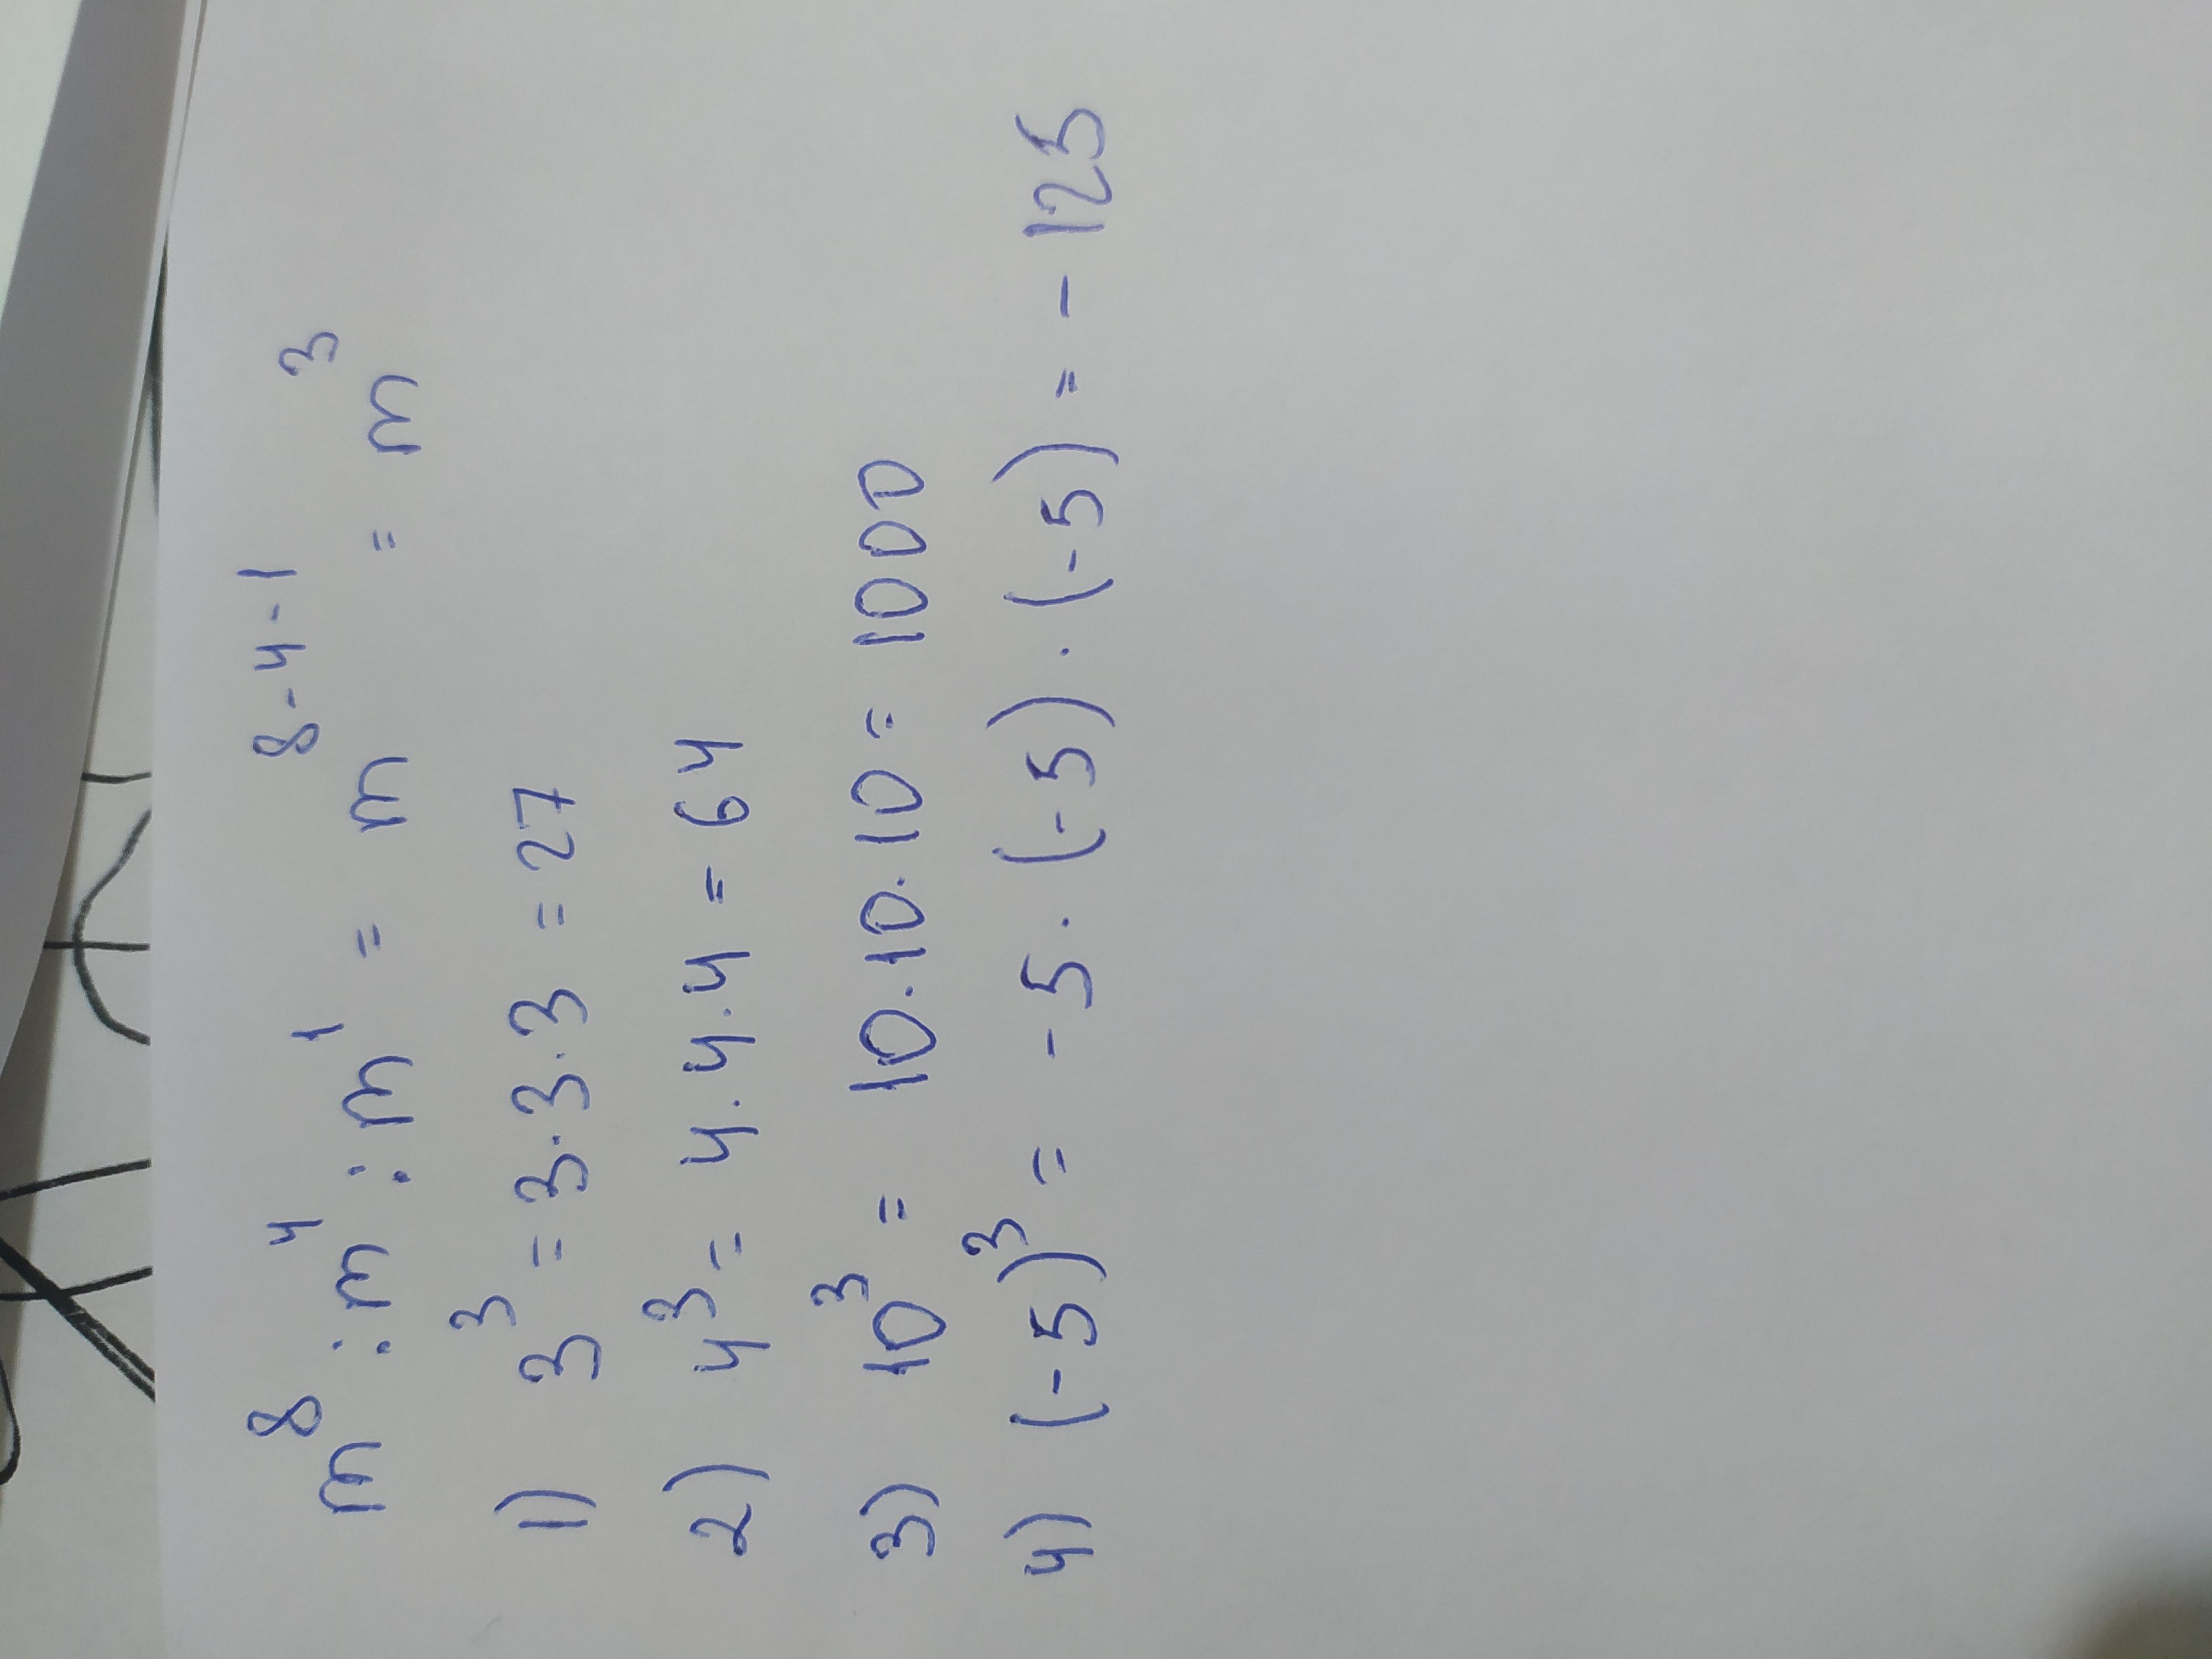 m⁸ : m⁴ : m¹ = m⁸⁻⁴⁻¹ = m³
1) 3³ = 3·3·3 = 27
2) 4³ = 4·4·4 = 64
3) 10³ = 10·10·10 = 1000
4) (-5)³ = -5·(-5)·(-5) = -125